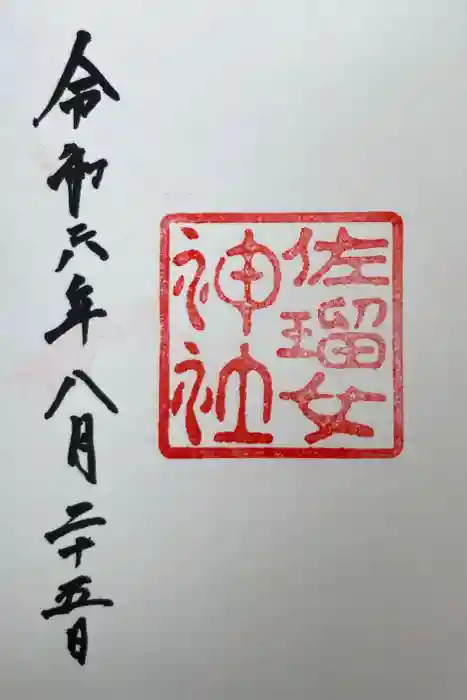 佐瑠女
神社
令和六年八月二十五日